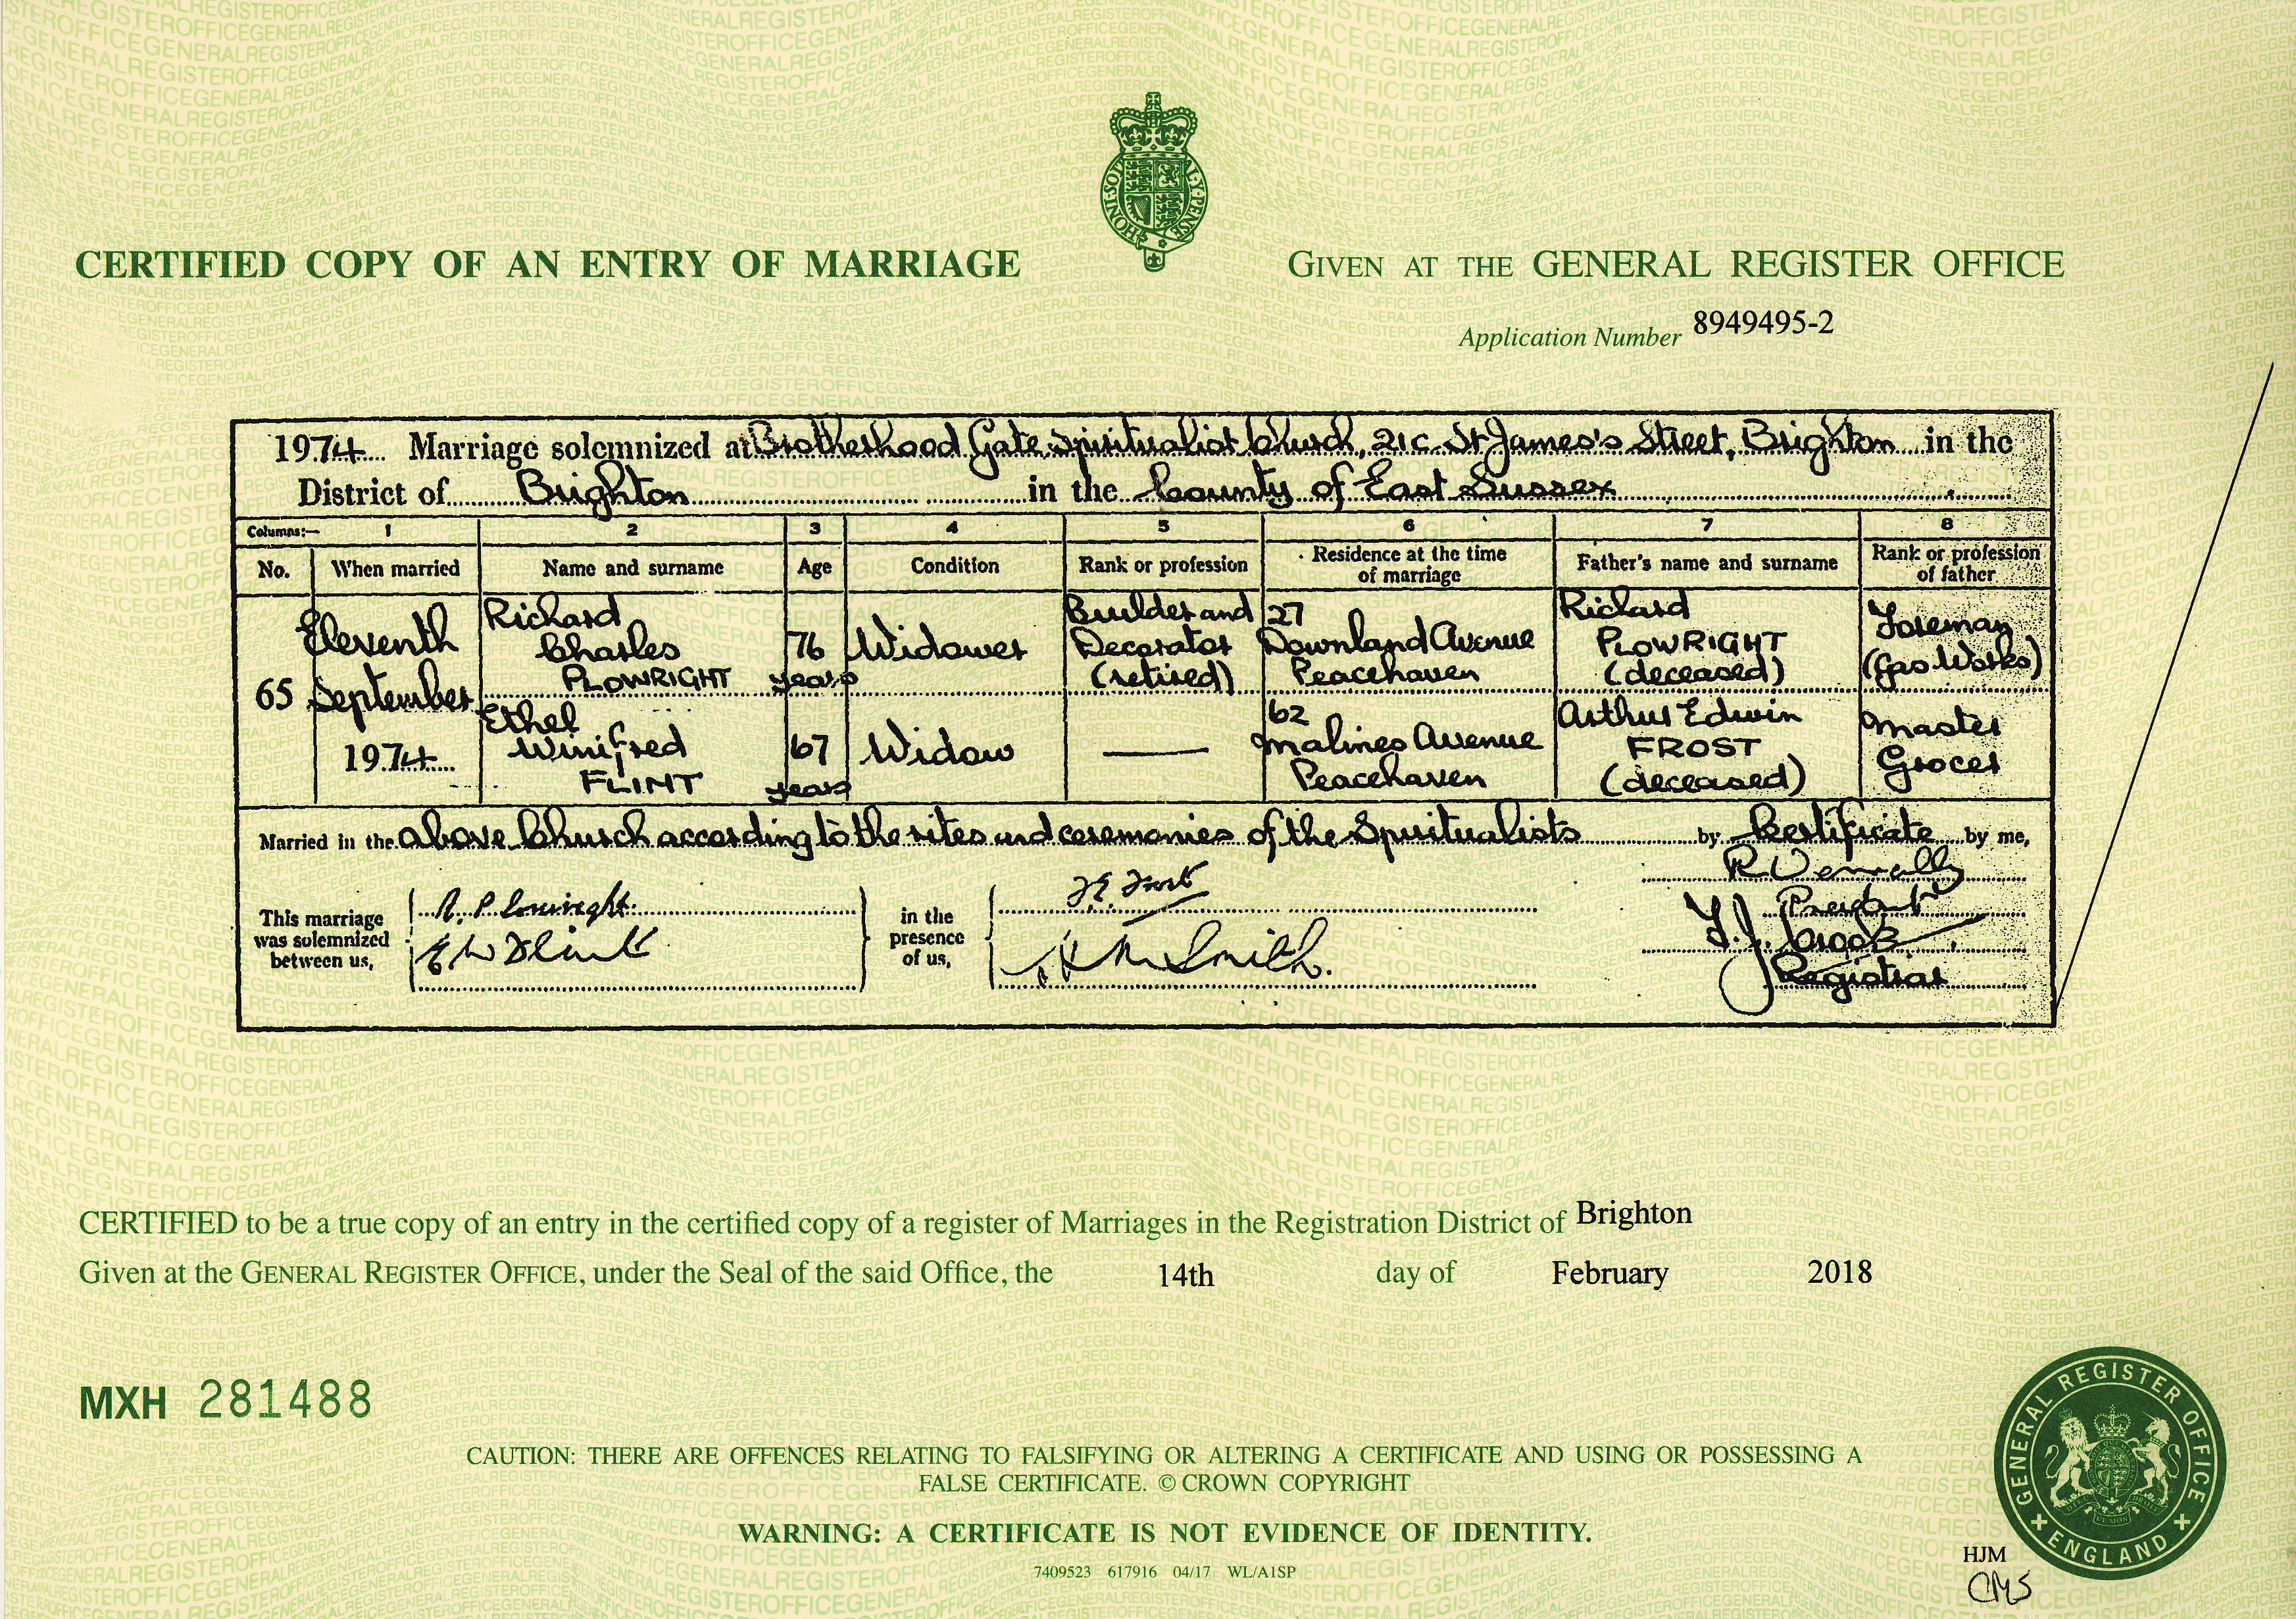 HONI·SOIT
AL·Y·PENSE
CERTIFIED COPY OF AN ENTRY OF MARRIAGE
GIVEN AT THE GENERAL REGISTER OFFICE
Application Number 8949495-2
1974 Marriage solemnized at Brotherhood Gate Spiritualist Church, 21c St James's Street, Brighton in the
District of Brighton in the County of East Sussex
Columns:— 1 2 3 4 5 6 7 8
No. When married Name and surname Age Condition Rank or profession Residence at the time of marriage Father's name and surname Rank or profession of father
65 Eleventh September 1974
Richard Charles PLOWRIGHT 76 years Widower Builder and Decorator (retired) 27 Downland Avenue Peacehaven Richard PLOWRIGHT (deceased) Foreman (Gas Works)
Ethel Winifred FLINT 67 years Widow — 62 Malines Avenue Peacehaven Arthur Edwin FROST (deceased) Master Grocer
Married in the above Church according to the rites and ceremonies of the Spiritualists by Certificate by me,
This marriage was solemnized between us,
R. Plowright
E W Flint
in the presence of us,
Frost
Smith.
President
Registrar
CERTIFIED to be a true copy of an entry in the certified copy of a register of Marriages in the Registration District of Brighton
Given at the GENERAL REGISTER OFFICE, under the Seal of the said Office, the 14th day of February 2018
MXH 281488
CAUTION: THERE ARE OFFENCES RELATING TO FALSIFYING OR ALTERING A CERTIFICATE AND USING OR POSSESSING A
FALSE CERTIFICATE. © CROWN COPYRIGHT
WARNING: A CERTIFICATE IS NOT EVIDENCE OF IDENTITY.
7409523 617916 04/17 WL/A1SP
GENERAL REGISTER OFFICE
ENGLAND
HJM